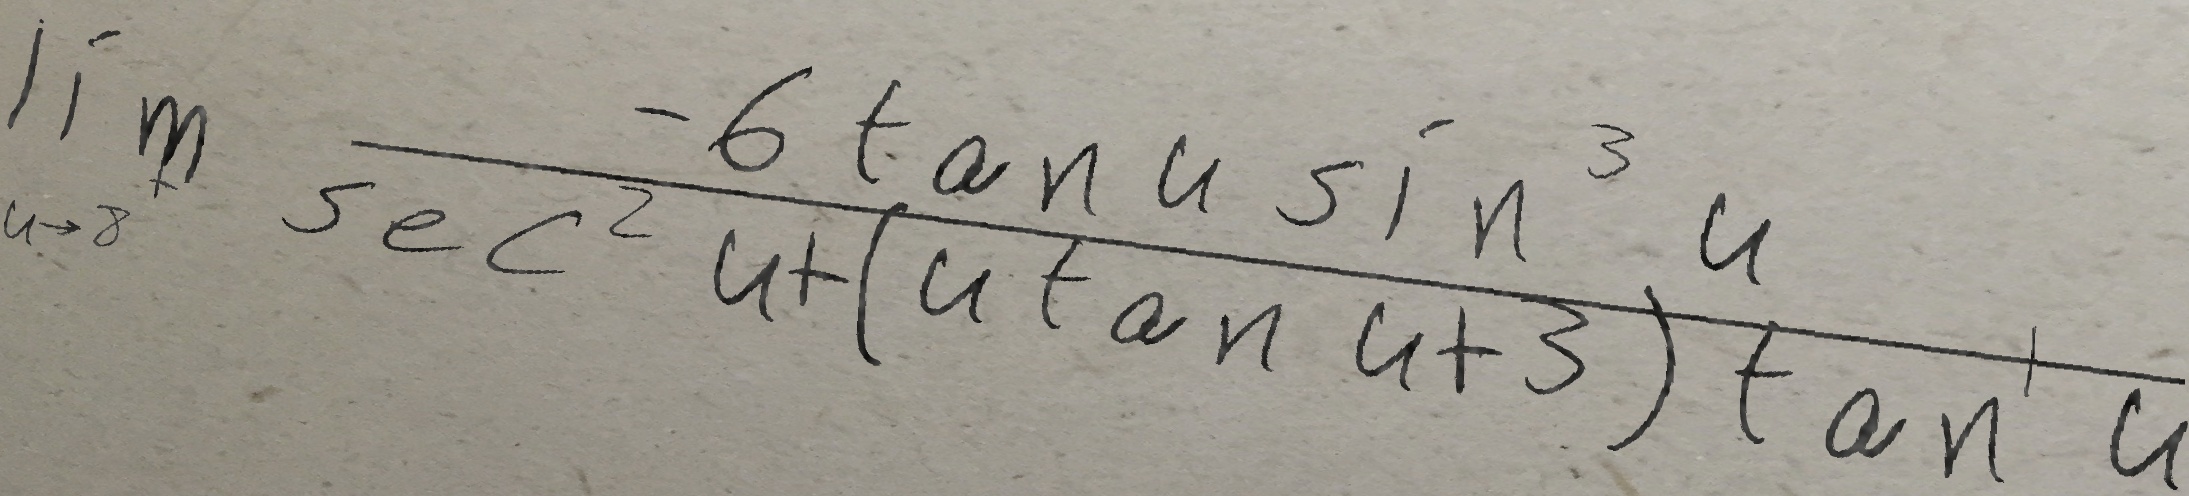 \lim_{u \to 8^+} \frac{-6 \tan u \sin^3 u}{\sec^2 u + (u \tan u + 3) \tan^1 u}